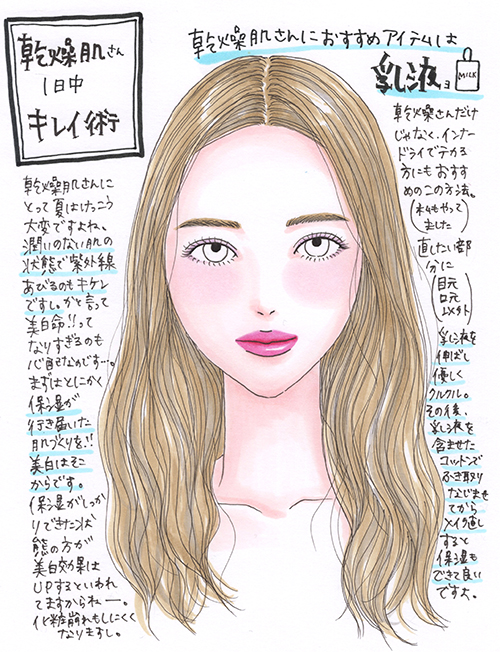 乾燥肌さん
1日中
キレイ術
乾燥肌さんにおすすめアイテムは
乳液ョ
MILK
乾燥肌さんに
とって夏はけっこう
大変ですよね、
潤いのない肌の
状態で紫外線
あびるのもキケン
ですし。かと言って
美白命!!って
なりすぎるのも
心配なのです…。
まずはとにかく
保湿が
行き届いた
肌づくりを!!
美白はそこ
からです。
保湿がしっか
りできた状
態の方が
美白効果は
UPするといわれ
てますからねー。
化粧崩れもしにくく
なりますし。
乾燥さんだけ
じゃなく、インナー
ドライでテカる
方にもおすす
めのこの方法。
(私もやって
ました)
直したい部
分に
(目元
口元
以外)
乳液を
伸ばし
優しく
クルクル。
その後、
乳液を
含ませた
コットンで
ふき取り
なじませ
てから
メイク直し
すると
保湿も
できて良い
ですよ。